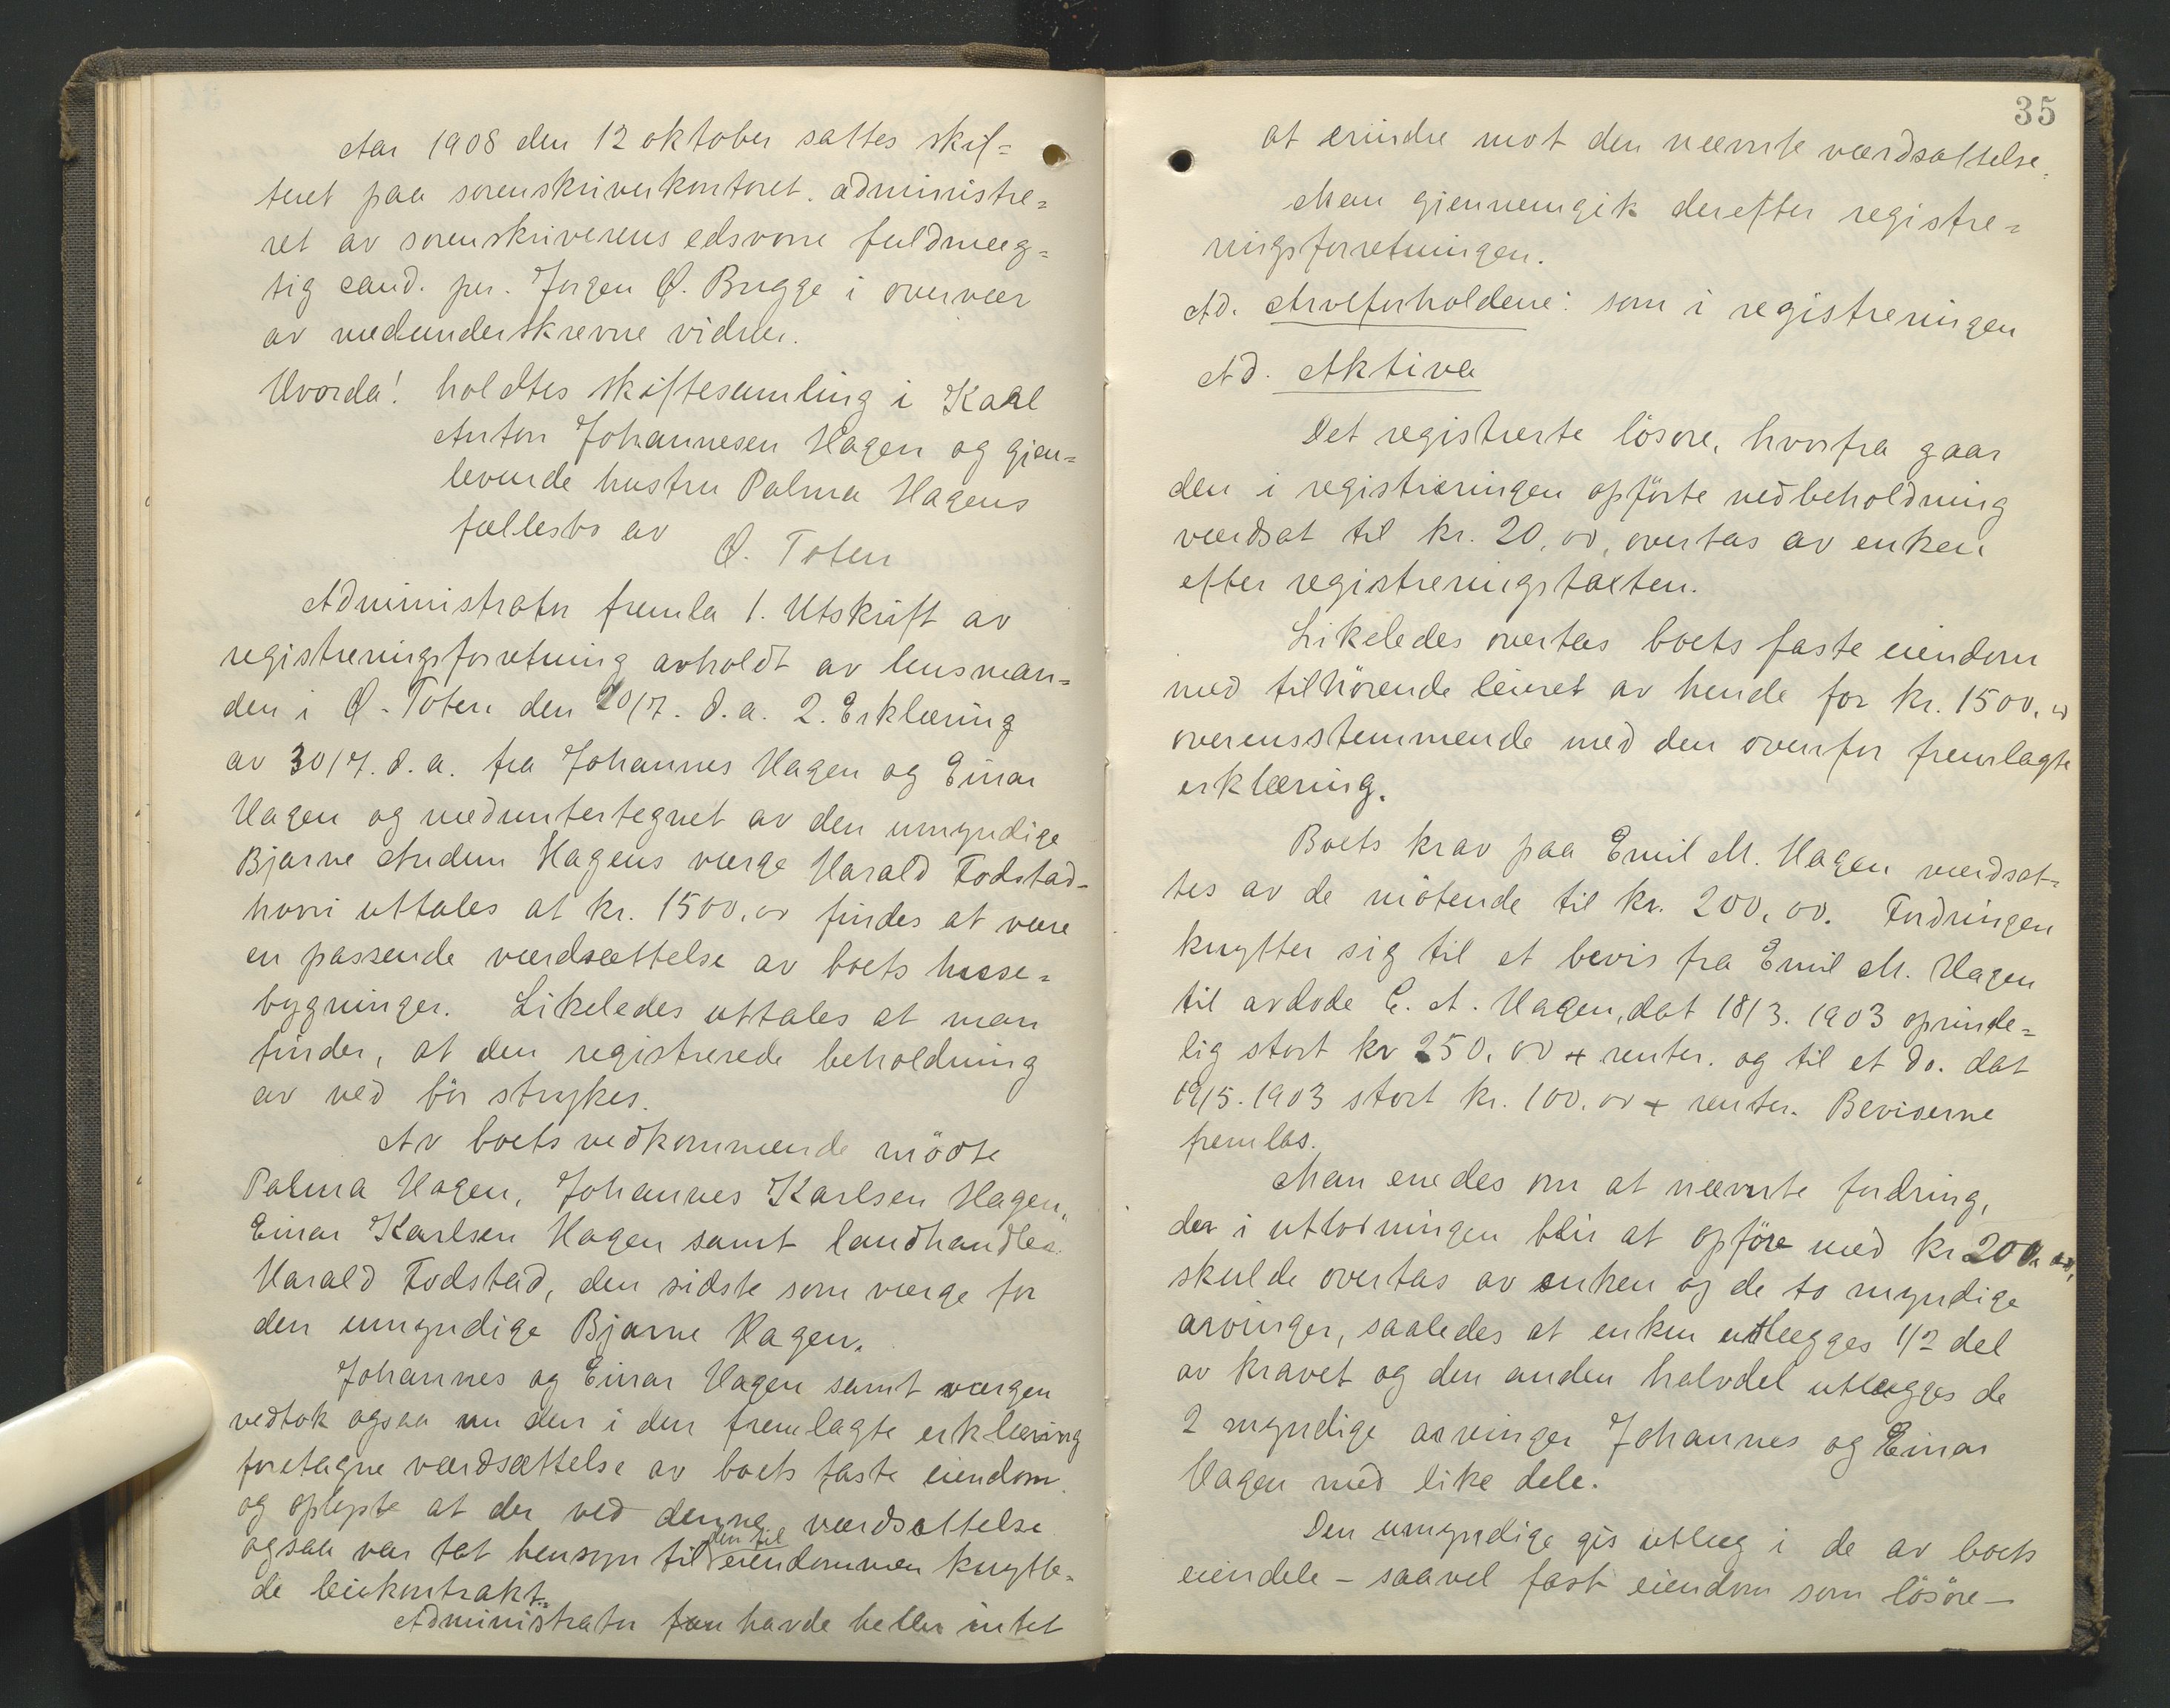 Aar 1908 den 12 oktober sattes skif=
teret paa sorenskriverkontoret. administre=
ret av sorenskriverens edsvorne fuldmæg=
tig cand. jur. Jørgen Ø. Brugge i overvær
av medunderskrevne vidner.
Hvorda! holdtes skiftesamling i Karl
Anton Johannesen Hagen og gjen=
levende hustru Palma Hagens
fællesbo av Ø. Toten
Administrator fremla 1. Utskrift av
registreringsforretning avholdt av lensman=
den i Ø. Toten den 20/7. d.a. 2. Erklæring
av 30/7. d.a. fra Johannes Hagen og Einar
Hagen og meduntertegnet av den umyndige
Bjarne Audun Hagens værge Harald Fodstad-
hvori uttales at kr. 1500,00 findes at være
en passende værdsættelse av boets huse=
bygninger. Likeledes uttales at man
finder, at den registrerede beholdning
av ved bör strykes.
Av boets vedkommende mödte
Palma Hagen, Johannes Karlsen Hagen,
Einar Karlsen Hagen samt landhandler
Harald Fodstad, den sidste som værge for
den umyndige Bjarne Hagen.
Johannes og Einar Hagen samt værgen
vedtok ogsaa nu den i den fremlagte erklæring
foretagne værdsættelse av boets faste eiendom
og oplyste at der ved denne værdsættelse
ogsaa var tat hensyn til den til eiendommen knytte=
de leiekontrakt.
Administrator fan havde heller intet
35
at erindre mot den nævnte værdsættelse.
Man gjennemgik derefter registre=
ringsforretningen.
Ad. Arveforholdene: som i registreringen
Ad. Aktiva
Det registrerte lösöre, hvorfra gaar
den i registreringen opförte vedbeholdning
værdsat til kr. 20,00, overtas av enken
efter registreringstaxten.
Likeledes overtas boets faste eiendom
med tilhörende leieret av hende for kr. 1500,00
overensstemmende med den ovenfor fremlagte
erklæring.
Boets krav paa Emil M. Hagen værdsat=
tes av de mötende til kr. 200,00. Fordringen
knytter sig til et bevis fra Emil M. Hagen
til avdöde C. A. Hagen, dat 18/3. 1903 oprinde=
lig stort kr 250,00 + renter. og til et do. dat
19/5. 1903 stort kr. 100.00 + renter. Beviserne
fremlas.
Man enedes om at nævnte fordring,
der i utlodningen blir at opföre med kr 200,00,
skulde overtas av enken og de to myndige
arvinger, saaledes at enken utlægges 1/2 del
av kravet og den anden halvdel utlægges de
2 myndige arvinger Johannes og Einar
Hagen med like dele.
Den umyndige gis utlæg i de av boets
eiendele - saavel fast eiendom som lösöre -